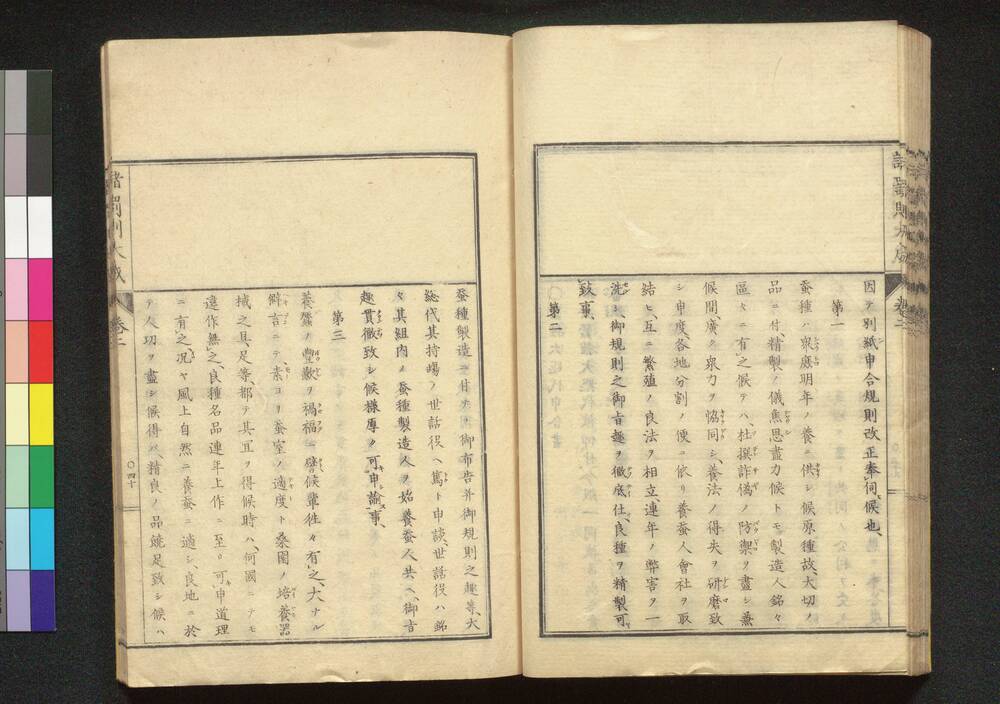 諸罰則大成
卷二
因テ別紙申合規則改正奉伺候也
第一
蚕種ハ衆庶明年ノ養ニ供シ候原種故、大切ノ
品ニ付、精製ノ儀焦思盡力候トモ製造人銘々
區々ニ有之候テハ、杜撰詐偽ノ防禦ヲ盡シ兼
候間、廣ク衆力ヲ恊同シ、養法ノ得失ヲ研磨致
シ申度、各地分割ノ便ニ依リ養蚕人會社ヲ取
結ヒ、互ニ繁殖ノ良法ヲ相立、連年ノ弊害ヲ一
洗シ、御規則之御旨趣ヲ徹底仕、良種ヲ精製可
致事、
第二
蚕種製造ニ付テノ御布告并御規則之趣等、大
総代其持場ノ世話役ヘ篤ト申談、世話役ハ銘
々其組内ノ蚕種製造人ヲ始養蚕人共ヘ、御旨
趣貫徹致シ候様厚ク可申諭事、
第三
養蚕ノ豊歉ヲ禍福ニ譬候輩往々有之、大ナル
僻言ニテ、素ヨリ蚕室ノ適度ト桑園ノ培養器
械之具、足等、都テ其宜ヲ得候時ハ、何國ニテモ
違作無之、良種名品連年上作ニ至ル可申道理
ニ有之、况ヤ風土自然ニ養蚕ニ適シ、良地ニ於
テ人切ヲ盡シ候得ハ、精良ノ品競足致シ候ハ
諸罰則大成
卷二
〇四十